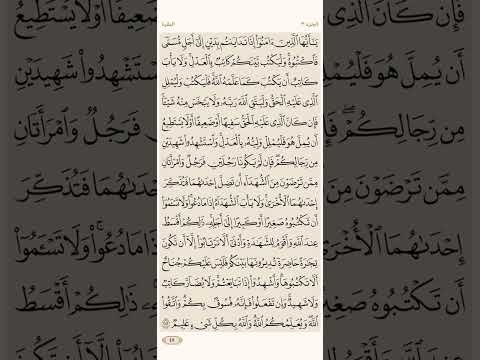 الجزء ٣
البقرة
يَٰٓأَيُّهَا ٱلَّذِينَ ءَامَنُوٓاْ إِذَا تَدَايَنتُم بِدَيۡنٍ إِلَىٰٓ أَجَلٖ مُّسَمّٗى
فَٱكۡتُبُوهُۚ وَلۡيَكۡتُب بَّيۡنَكُمۡ كَاتِبُۢ بِٱلۡعَدۡلِۚ وَلَا يَأۡبَ
كَاتِبٌ أَن يَكۡتُبَ كَمَا عَلَّمَهُ ٱللَّهُۚ فَلۡيَكۡتُبۡ وَلۡيُمۡلِلِ
ٱلَّذِي عَلَيۡهِ ٱلۡحَقُّ وَلۡيَتَّقِ ٱللَّهَ رَبَّهُۥ وَلَا يَبۡخَسۡ مِنۡهُ شَيۡـٔٗاۚ
فَإِن كَانَ ٱلَّذِي عَلَيۡهِ ٱلۡحَقُّ سَفِيهًا أَوۡ ضَعِيفًا أَوۡ لَا يَسۡتَطِيعُ
أَن يُمِلَّ هُوَ فَلۡيُمۡلِلۡ وَلِيُّهُۥ بِٱلۡعَدۡلِۚ وَٱسۡتَشۡهِدُواْ شَهِيدَيۡنِ
مِن رِّجَالِكُمۡۖ فَإِن لَّمۡ يَكُونَا رَجُلَيۡنِ فَرَجُلٞ وَٱمۡرَأَتَانِ
مِمَّن تَرۡضَوۡنَ مِنَ ٱلشُّهَدَآءِ أَن تَضِلَّ إِحۡدَىٰهُمَا فَتُذَكِّرَ
إِحۡدَىٰهُمَا ٱلۡأُخۡرَىٰۚ وَلَا يَأۡبَ ٱلشُّهَدَآءُ إِذَا مَا دُعُواْۚ وَلَا تَسۡـَٔمُوٓاْ
أَن تَكۡتُبُوهُ صَغِيرًا أَوۡ كَبِيرًا إِلَىٰٓ أَجَلِهِۦۚ ذَٰلِكُمۡ أَقۡسَطُ
عِندَ ٱللَّهِ وَأَقۡوَمُ لِلشَّهَٰدَةِ وَأَدۡنَىٰٓ أَلَّا تَرۡتَابُوٓاْ إِلَّآ أَن تَكُونَ
تِجَٰرَةً حَاضِرَةٗ تُدِيرُونَهَا بَيۡنَكُمۡ فَلَيۡسَ عَلَيۡكُمۡ جُنَاحٌ
أَلَّا تَكۡتُبُوهَاۗ وَأَشۡهِدُوٓاْ إِذَا تَبَايَعۡتُمۡۚ وَلَا يُضَآرَّ كَاتِبٞ
وَلَا شَهِيدٞۚ وَإِن تَفۡعَلُواْ فَإِنَّهُۥ فُسُوقُۢ بِكُمۡۗ وَٱتَّقُواْ
ٱللَّهَۖ وَيُعَلِّمُكُمُ ٱللَّهُۗ وَٱللَّهُ بِكُلِّ شَيۡءٍ عَلِيمٞ ٢٨٢
٤٨